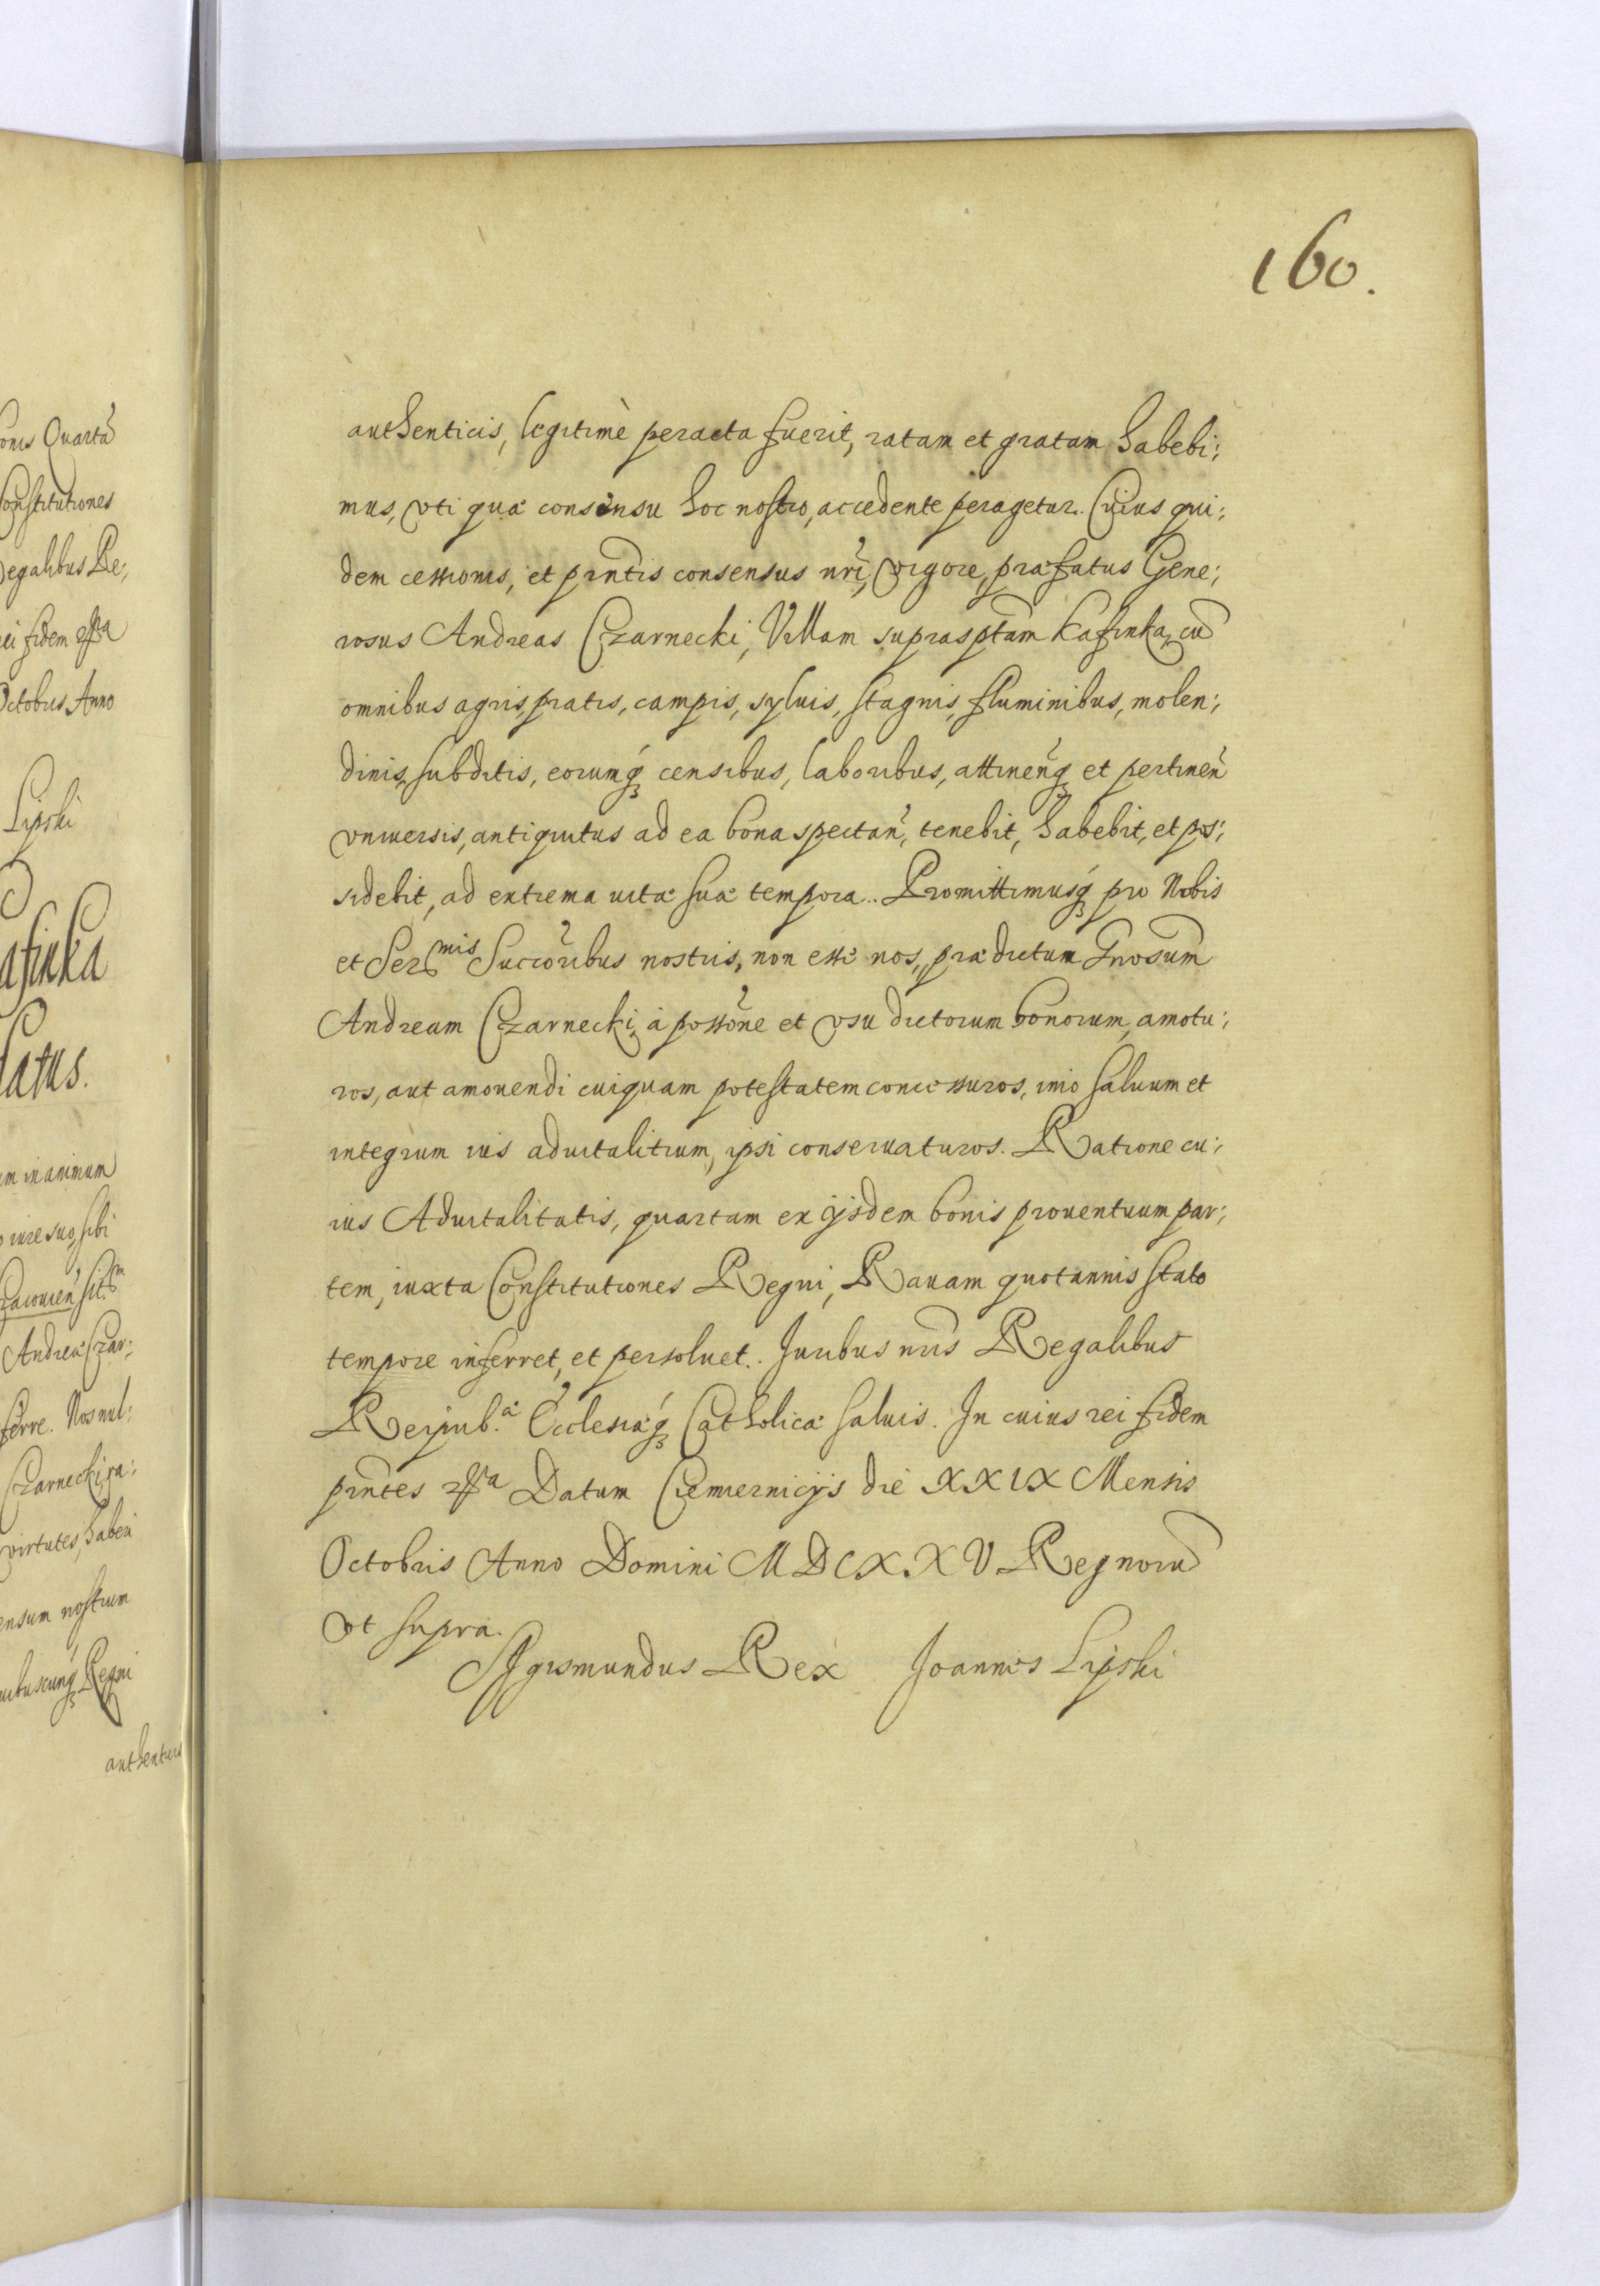 160.
authenticis, legitimè peracta fuerit, ratam et gratam habebi;
mus, vti quæ consensu hoc nostro, accedente peragetur. Cuius qui;
dem cessionis, et pñtis consensus nři, vigore, præfatus Gene;
rosus Andreas Czarnecki, Villam suprasptam Kafinka, cũ
omnibus agris, pratis, campis, syluis, stagnis, fluminibus, molen;
dinis, subditis, eorumq; censibus, laboribus, attineñq; et pertineñ
vniuersis, antiquitus ad ea bona spectañ, tenebit, habebit, et pos;
sidebit, ad extrema vitæ suæ tempora. Promittimusq; pro Nobis
et Ser.mis Succoribus nostris, non esse nos, prædictum Gnosum
Andream Czarnecki, à possõne et vsu dictorum bonorum, amotu;
ros, aut amouendi cuiquam potestatem concessuros, imo saluum et
integrum ius aduitalitium, ipsi conseruaturos. Ratione cu;
ius Aduitalitatis, quartam ex ijsdem bonis prouentuum par;
tem, iuxta Constitutiones Regni, Rauam quotannis stato
tempore inferret, et persoluet. Juribus nris Regalibus
Reipub.æ Ecclesiæq; Catholicæ saluis. In cuius rei fidem
pñtes Datum Ciemiernicijs die XXIX Mensis
Octobris Anno Domini MDCXXV Regnorũ
vt supra.
Sigismundus Rex Joannes Lipski
onis Quartã
Constitutiones
Regalibus Re;
rei fidem
Octobris Anno
Lipski
afinka
latus.
um in animum
iure suo, sibi
Andreæ Czar;
ferre. Nos nul;
Czarnecki, ra;
virtutes, haberi
ensum nostrum
uibuscunq; Regni
authenticis